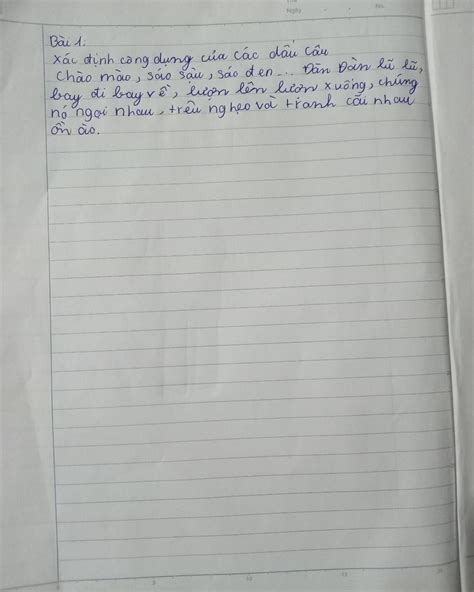 Bài 1:
Xác định công dụng của các dấu câu
Chào mào, sáo sậu, sáo đen... Đàn Đàn lũ lũ,
bay đi bay về, lượn lên lượn xuống, chúng
nó ngọi nhau, trêu nghẹo và tranh cãi nhau
ồn ào.